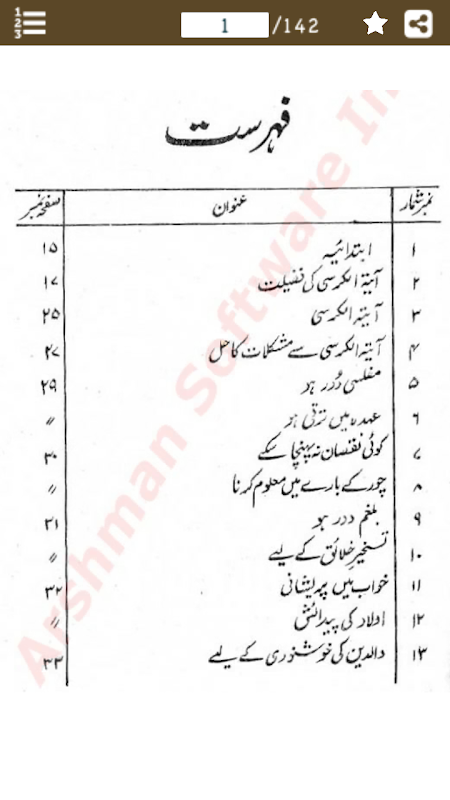 1
2
3
1 /142
فہرست
نمبرشمار عنوان صفحہ نمبر
۱ ابتدائیہ ۱۵
۲ آیتہ الکرسی کی فضیلت ۱۷
۳ آیتہ الکرسی ۲۵
۴ آیتہ الکرسی سے مشکلات کا حل ۲۷
۵ مفلسی دُور ہو ۲۹
۶ عہدہ میں ترقی ہو 〃
۷ کوئی نقصان نہ پہنچا سکے ۳۰
۸ چور کے بارے میں معلوم کرنا 〃
۹ بلغم دور ہو ۳۱
۱۰ تسخیرِ خلائق کے لیے 〃
۱۱ خواب میں پریشانی ۳۲
۱۲ اولاد کی پیدائش 〃
۱۳ والدین کی خوشنودی کے لیے ۳۳
Arshman Software In